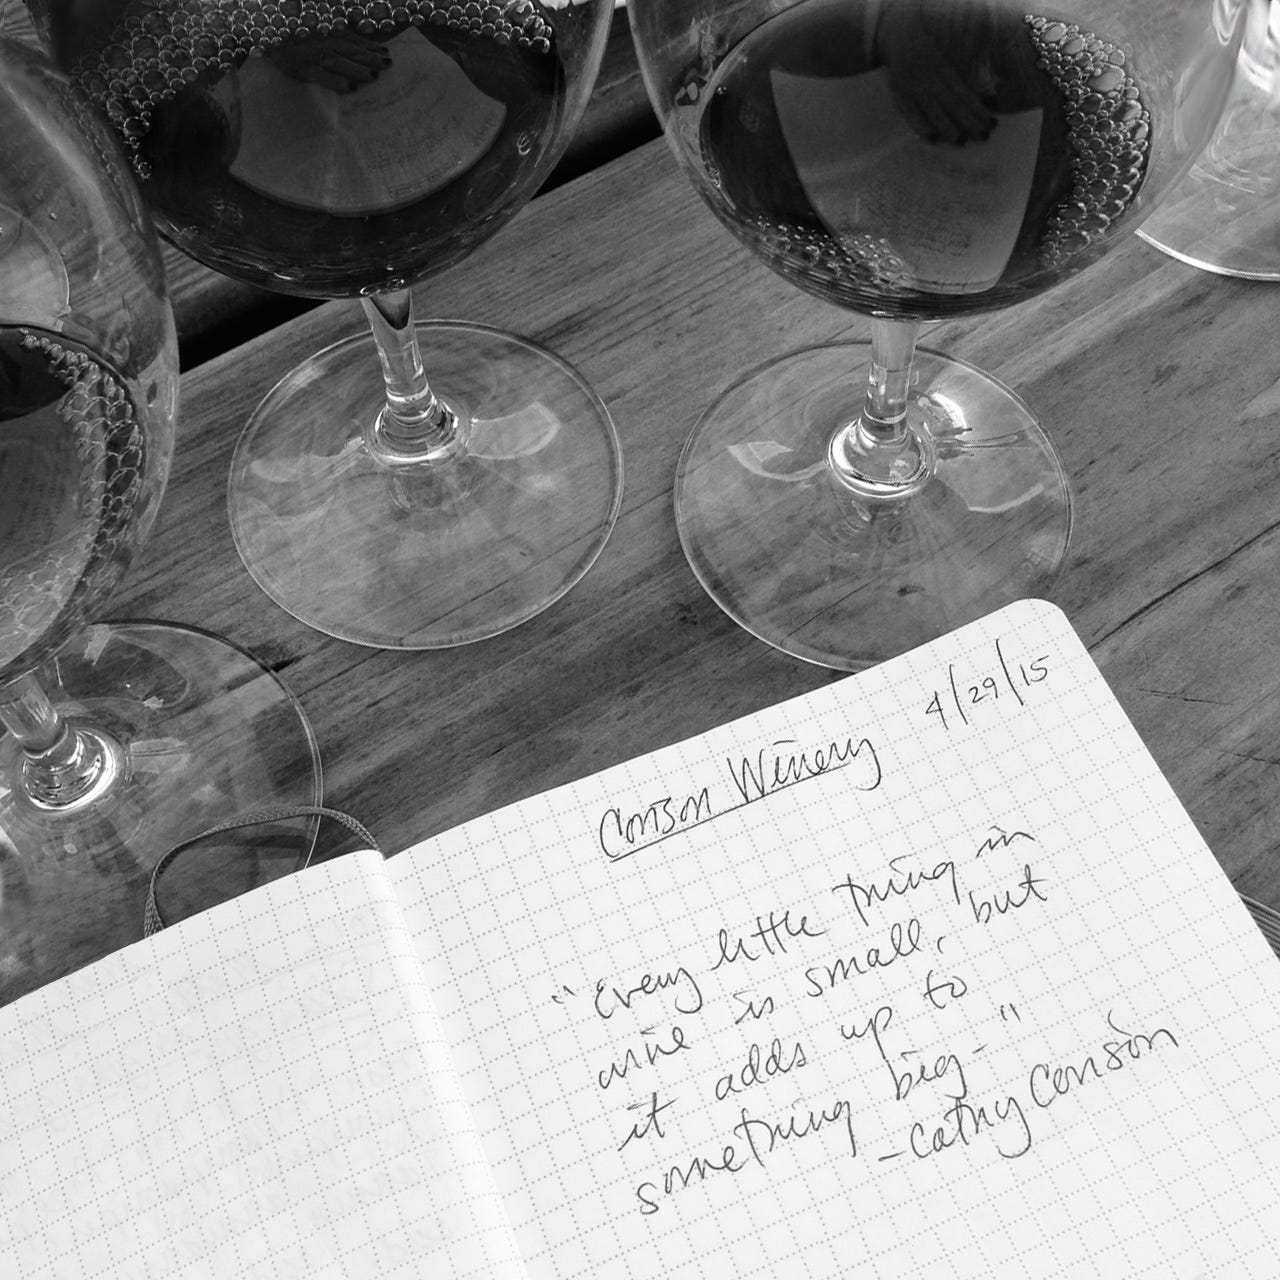 4/29/15
Corison Winery
"Every little thing in
wine is small, but
it adds up to
something big."
-Cathy Corison